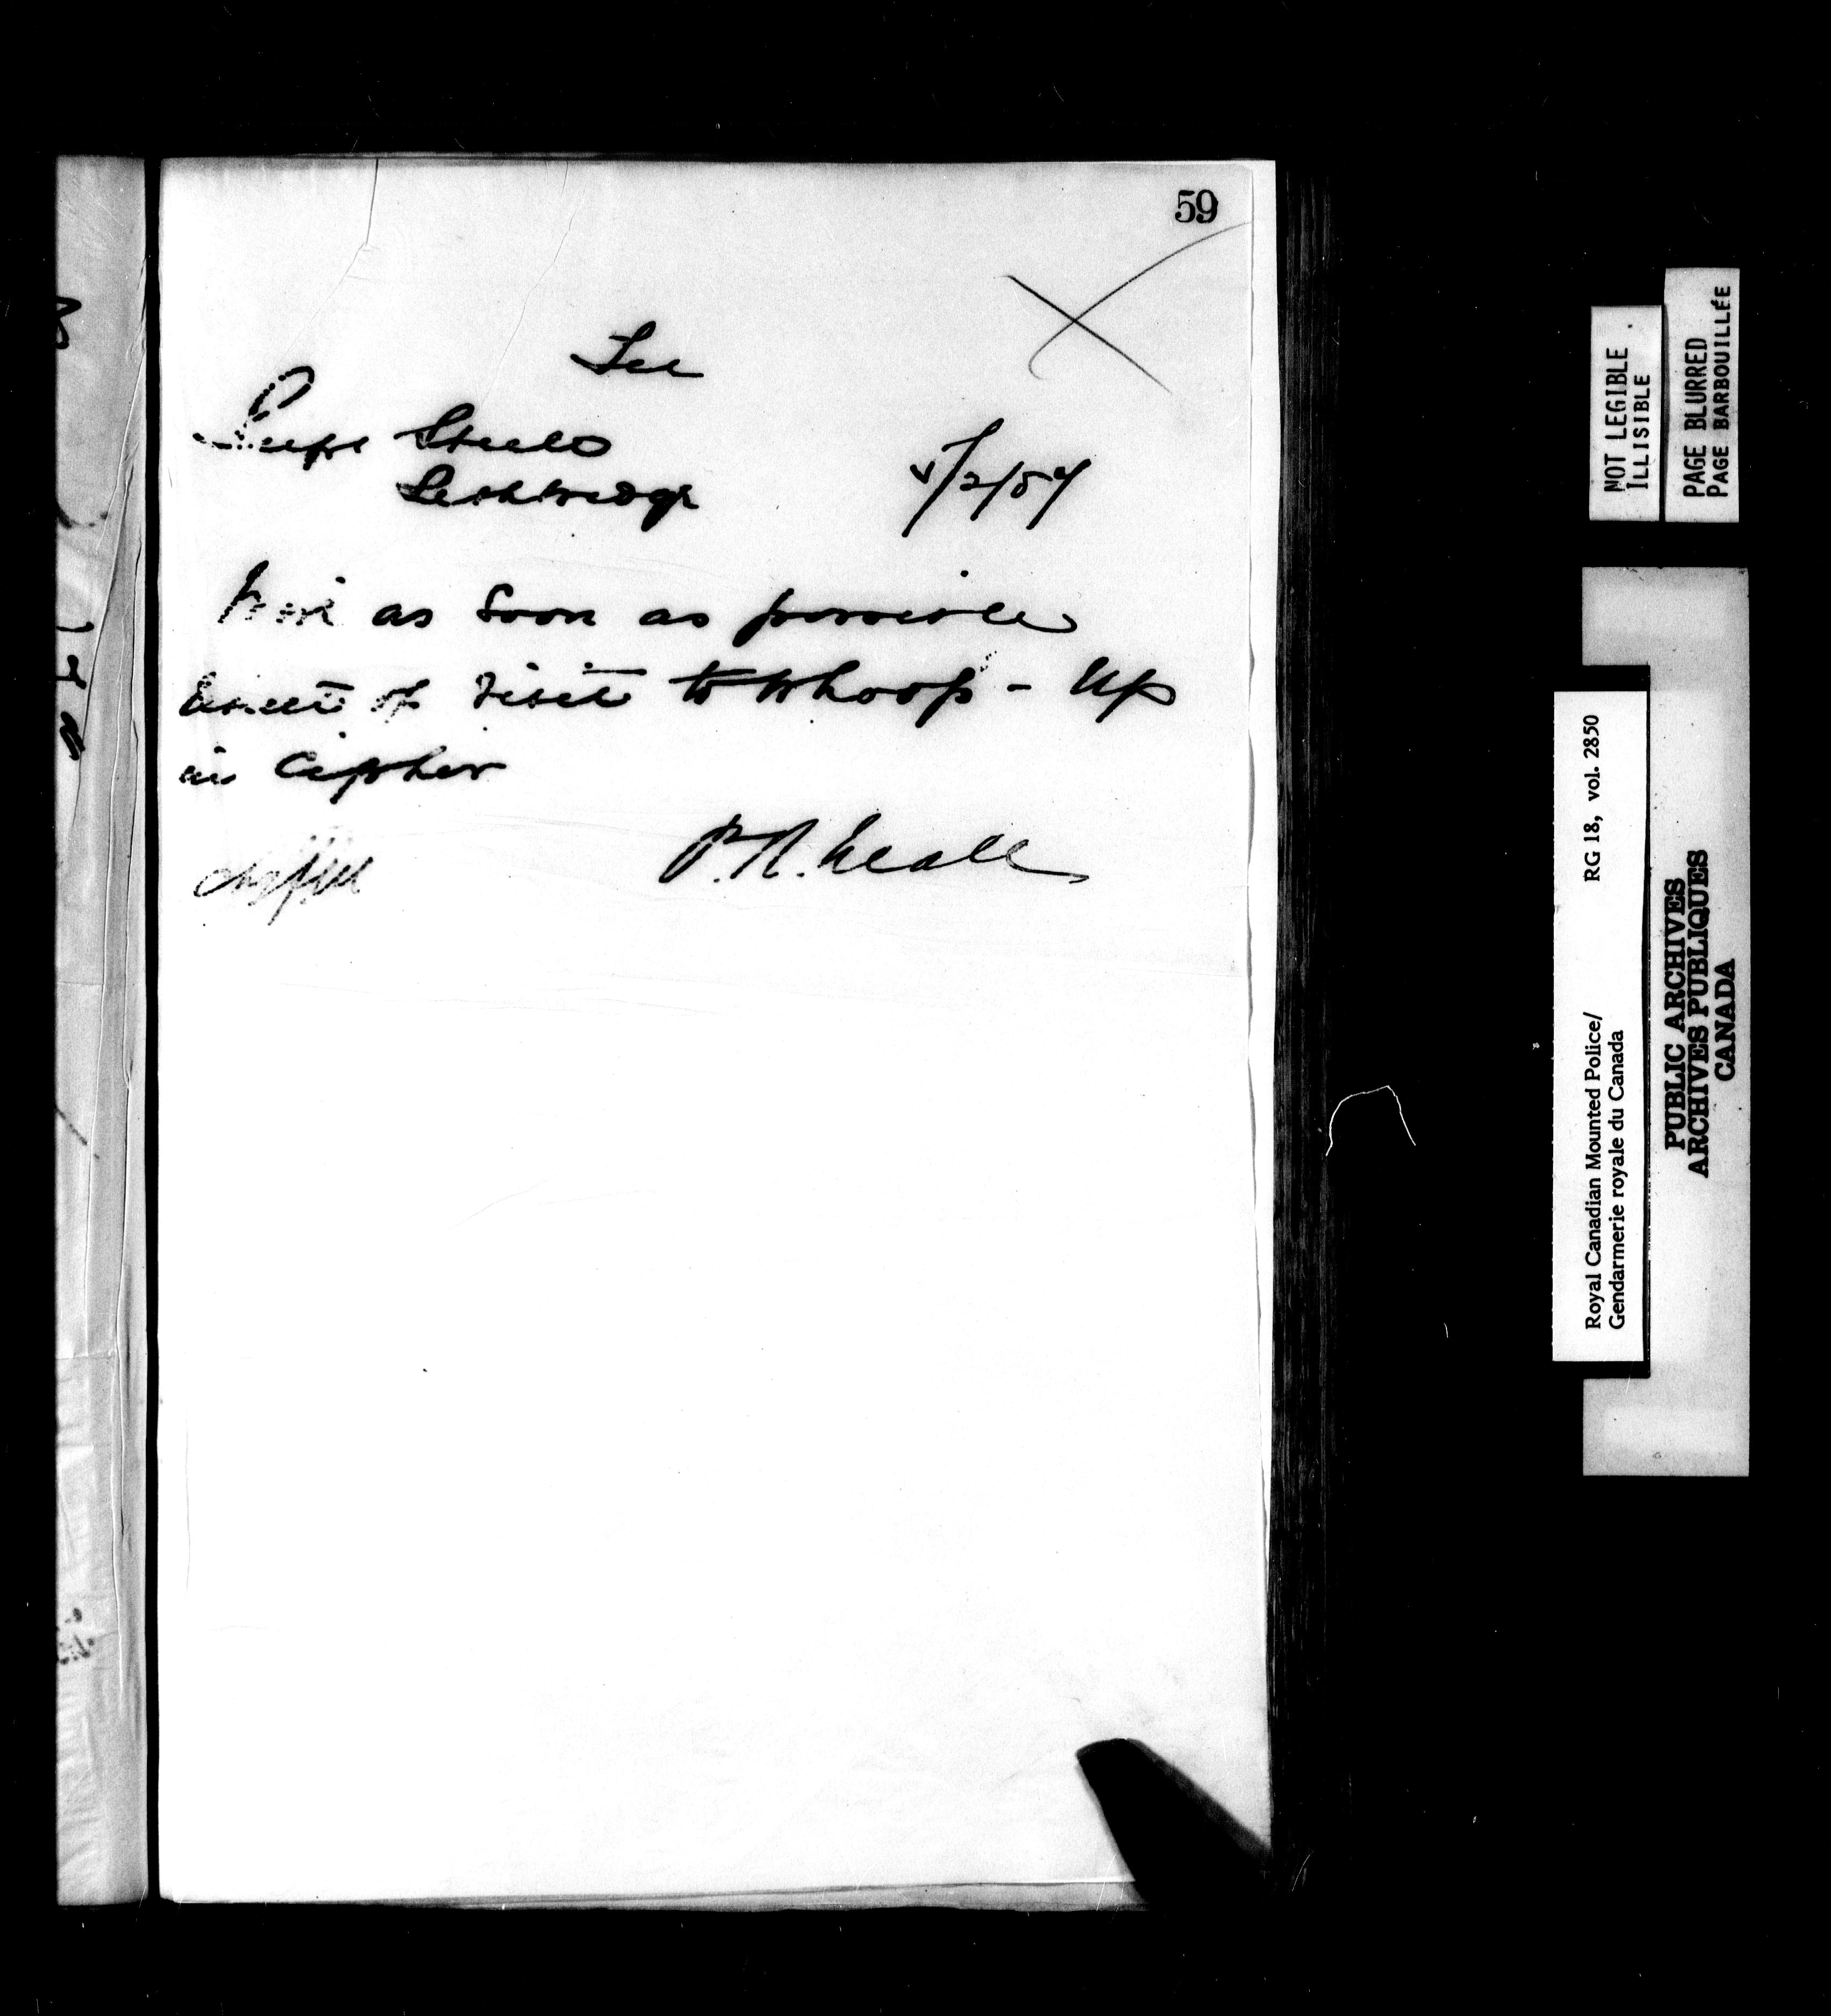 59
Tel
Supt Steele
Lethbridge
5/2/87
Wire as soon as possible
result of visit to Whoop-Up
in Cipher
P.R. Neale
NOT LEGIBLE
ILLISIBLE
PAGE BLURRED
PAGE BARBOUILLÉE
Royal Canadian Mounted Police/
Gendarmerie royale du Canada
RG 18, vol. 2850
PUBLIC ARCHIVES
ARCHIVES PUBLIQUES
CANADA